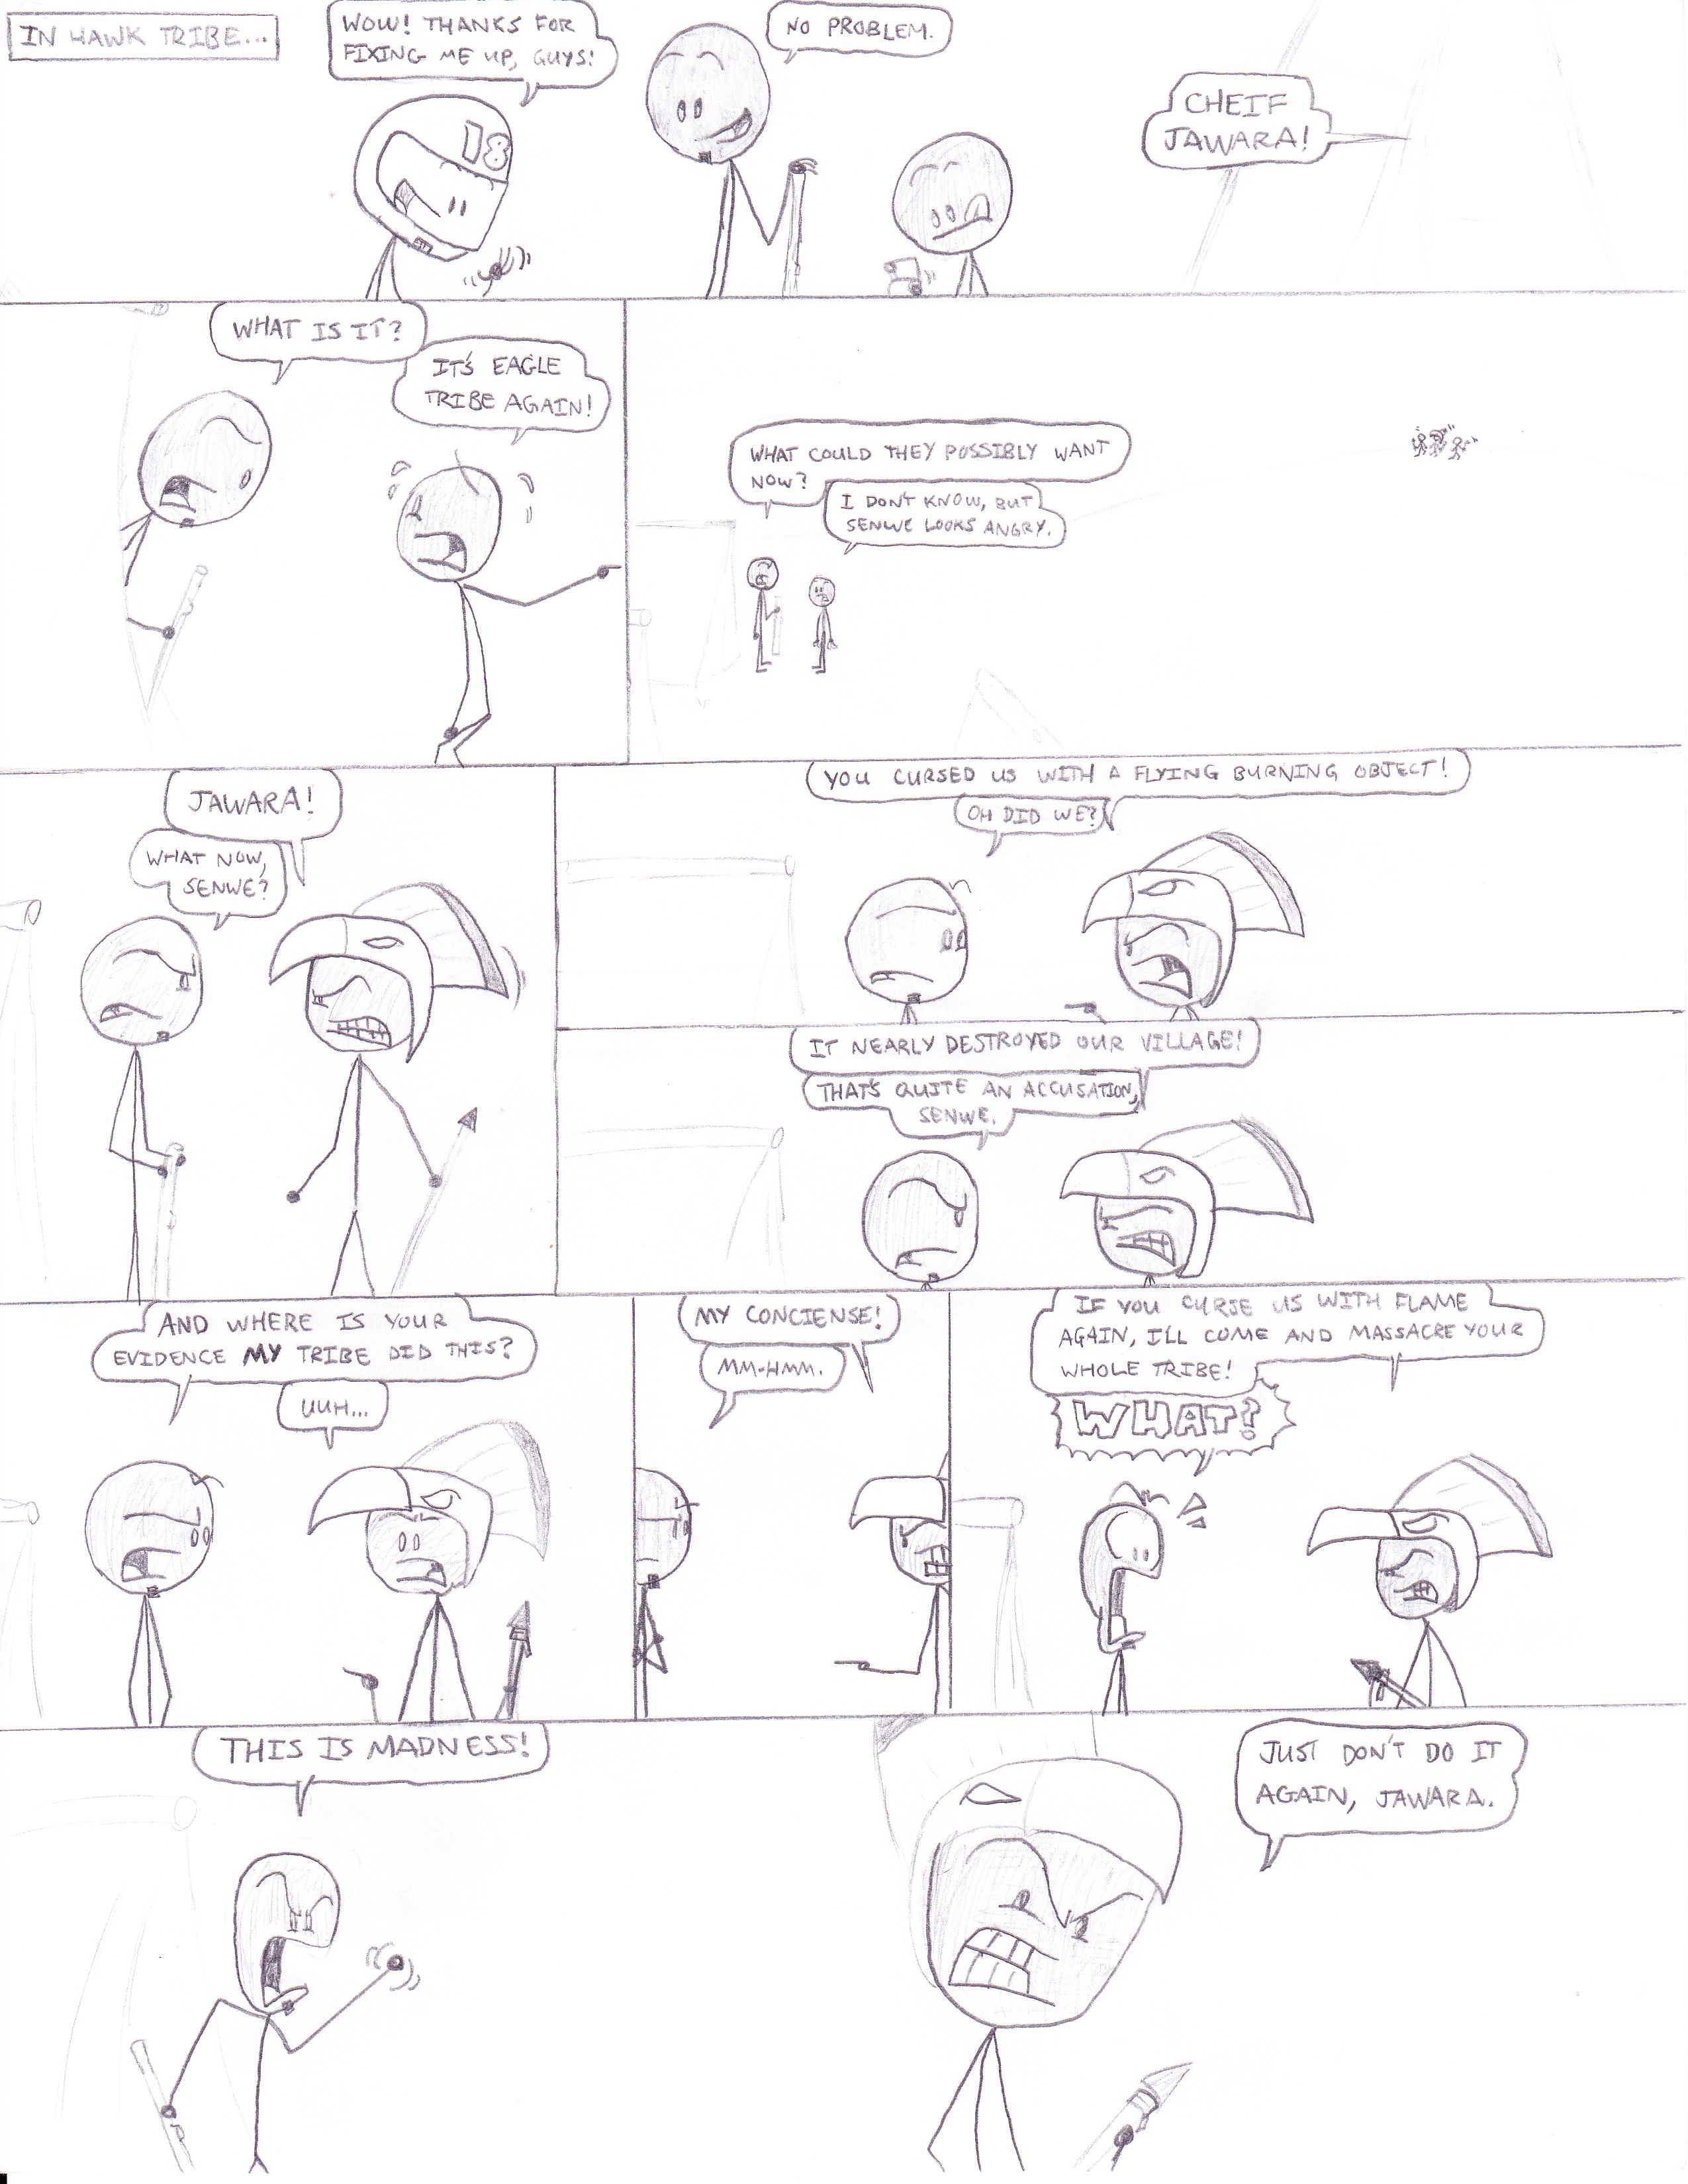 IN HAWK TRIBE...
WOW! THANKS FOR
FIXING ME UP, GUYS!
18
NO PROBLEM.
CHEIF
JAWARA!
WHAT IS IT?
IT'S EAGLE
TRIBE AGAIN!
WHAT COULD THEY POSSIBLY WANT
NOW?
I DON'T KNOW, BUT
SENWE LOOKS ANGRY.
JAWARA!
WHAT NOW,
SENWE?
YOU CURSED US WITH A FLYING BURNING OBJECT!
OH DID WE?
IT NEARLY DESTROYED OUR VILLAGE!
THAT'S QUITE AN ACCUSATION,
SENWE.
AND WHERE IS YOUR
EVIDENCE MY TRIBE DID THIS?
UUH...
MY CONCIENSE!
MM-HMM.
IF YOU CURSE US WITH FLAME
AGAIN, I'LL COME AND MASSACRE YOUR
WHOLE TRIBE!
WHAT?
THIS IS MADNESS!
JUST DON'T DO IT
AGAIN, JAWARA.